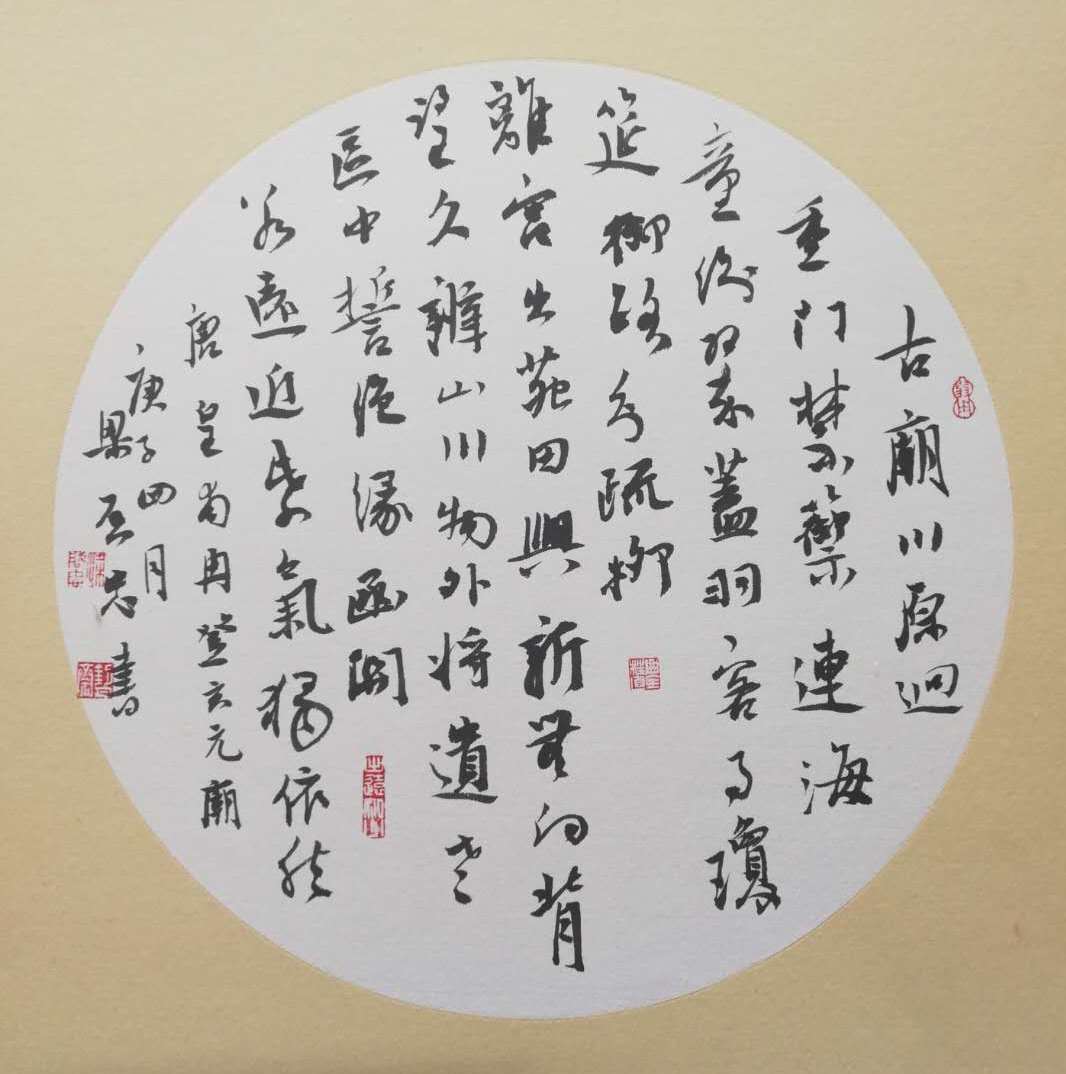 古廟川原迥
重門禁籞連海
童紛翠蓋羽客事瓊
筵御路分疏柳
離宮出苑田興新無向背
望久辨山川物外將遺老
區中誓絕緣函關
若遠近紫氣獨依然
唐皇甫冉登玄元廟
庚子四月
忠書